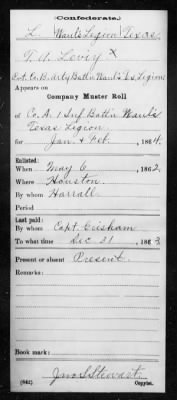 Confederate.
L. Waul's Legion Texas.
T. A. Levix X
Pvt. Co. B. Arty Batt'n Waul's Tex Legion
Appears on
Company Muster Roll
of Co. A 1 Inf Batt'n Waul's
Texas Legion
for Jan. & Feb., 1864.
Enlisted:
When May 6, 1862.
Where Houston.
By whom Harrall
Period
Last paid:
By whom Capt. Grisham
To what time Dec 31, 1863
Present or absent Present.
Remarks:
Book mark:
(642) Jno S Stewart
Copyist.